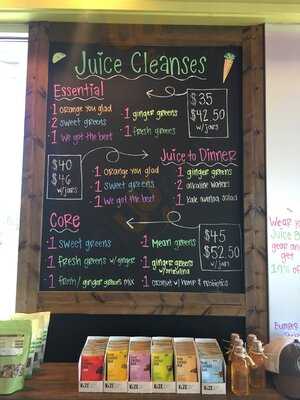 Juice Cleanses
Essential
·1 orange you glad
·2 sweet greens
·1 we got the beet
·1 ginger greens
·1 fresh greens
$35
$42.50
w/jars
$40
$46
w/jars
Juice to Dinner
·1 orange you glad
·1 sweet greens
·1 we got the beet
·1 ginger greens
·2 alkaline waters
·1 kale quinoa salad
Core
·1 sweet greens
·1 fresh greens w/ginger
·1 fresh/ginger greens mix
·1 Mean greens
·1 ginger greens
w/spirulina
·1 coconut w/hemp & probiotics
$45
$52.50
w/jars
Wear
Juice B
gear an
get
10% off